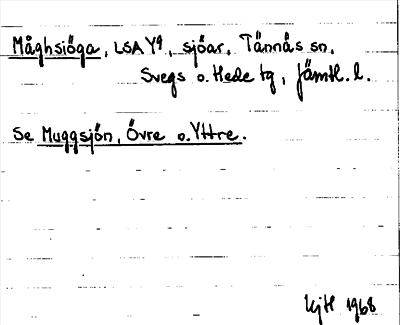 Måghsiöga, LSA Y9, sjöar, Tännäs sn,
Svegs o. Hede tg, Jämtl. l.
Se Muggsjön, Övre o. Yttre.
KjH 1968